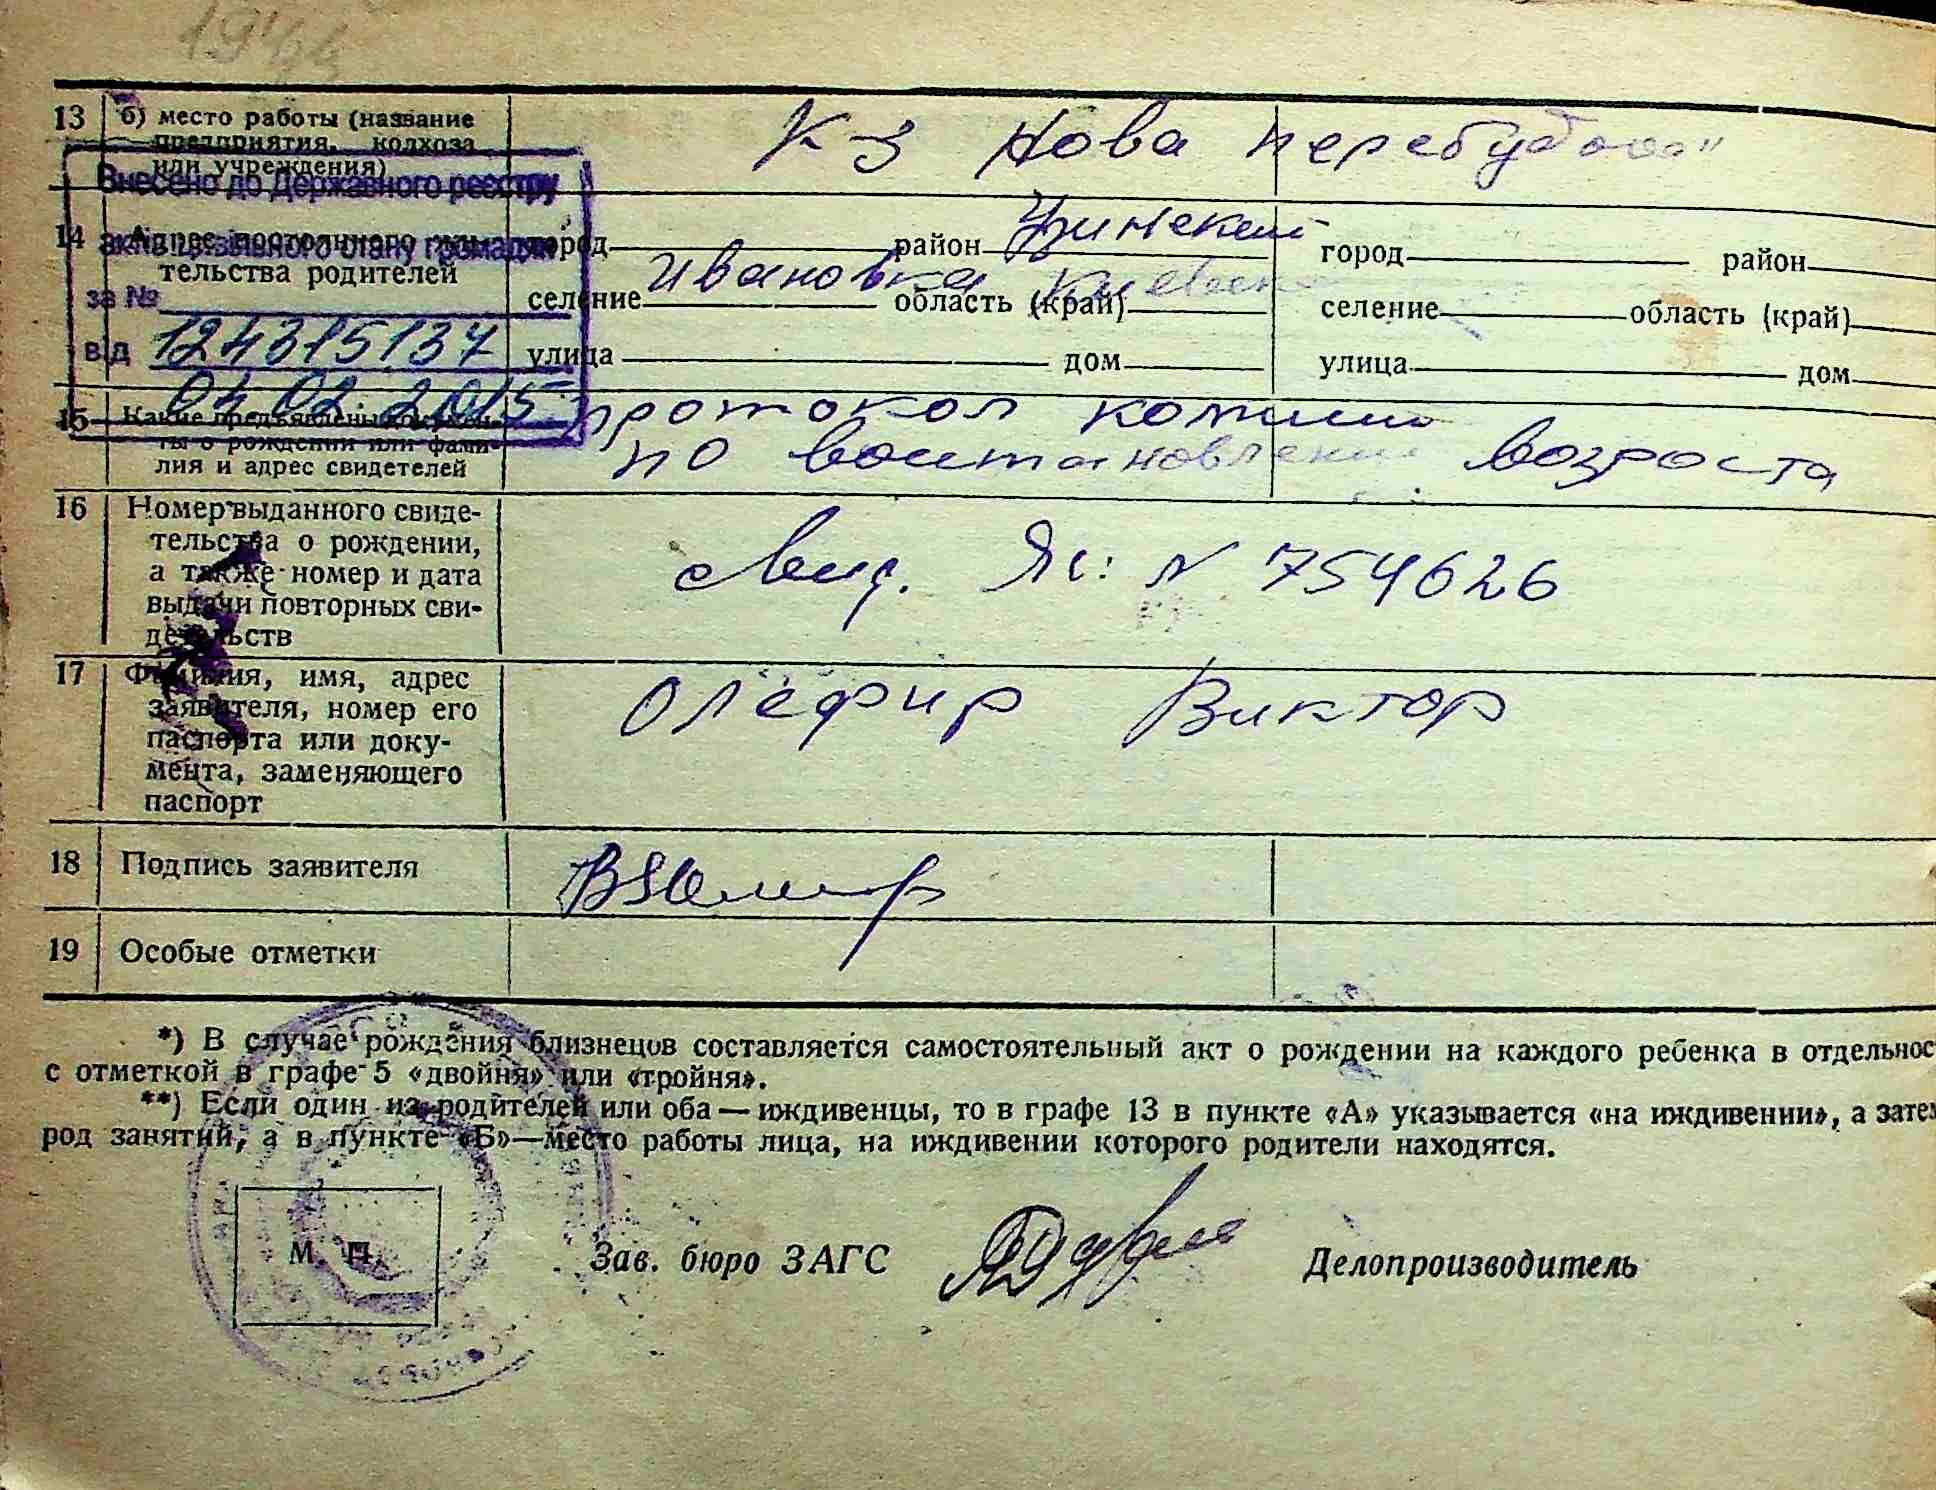 1944
13 б) место работы (название
предприятия, колхоза
или учреждения)
К-З Нова перебудова"
Внесено до Державного реєстру
актів цивільного стану громадян
за №
124315137
від
04.02.2015
14 Адрес постоянного жи-
тельства родителей
город район город район
селение Ивановка область (край) Киевска селение область (край)
улица дом улица дом
15 Какие предъявлены докумен-
ты о рождении или фами-
лия и адрес свидетелей
протокол комиии
по воистановлению возроста
16 Номер выданного свиде-
тельства о рождении,
а также номер и дата
выдачи повторных сви-
детельств
N 754626
17 Фамилия, имя, адрес
заявителя, номер его
паспорта или доку-
мента, заменяющего
паспорт
Олефир Виктор
18 Подпись заявителя
19 Особые отметки
*) В случае рождения близнецов составляется самостоятельный акт о рождении на каждого ребенка в отдельнос
с отметкой в графе 5 «двойня» или «тройня».
**) Если один из родителей или оба — иждивенцы, то в графе 13 в пункте «А» указывается «на иждивении», а зате
род занятий, а в пункте «Б»—место работы лица, на иждивении которого родители находятся.
М. П.
Зав. бюро ЗАГС Делопроизводитель